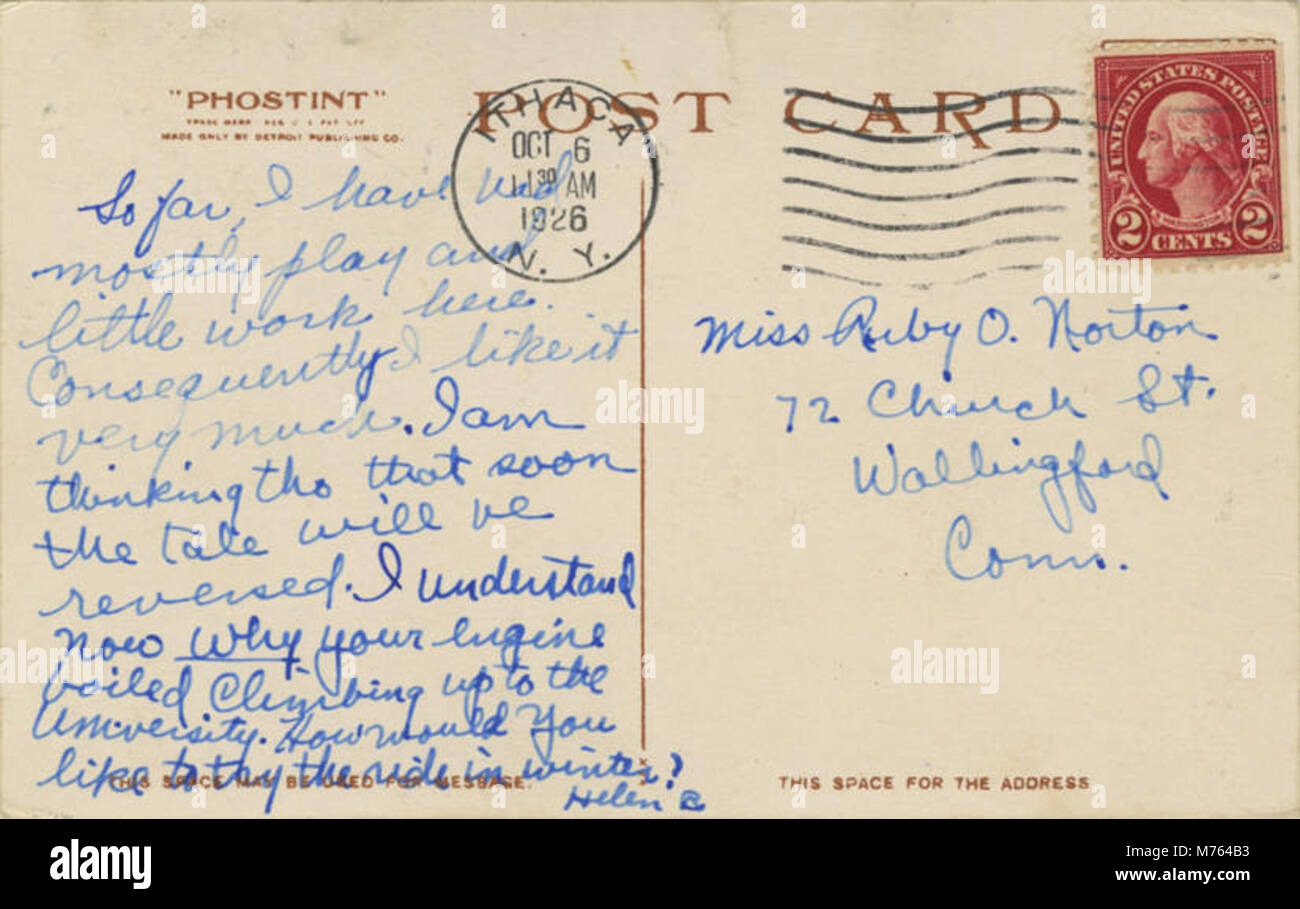 "PHOSTINT"
TRADE MARK REG U S PAT OFF
MADE ONLY BY DETROIT PUBLISHING CO.
POST CARD
ITHACA
OCT 6
11 30 AM
1926
N. Y.
UNITED STATES POSTAGE
2 CENTS 2
So far, I have had
mostly play and
little work here.
Consequently I like it
very much. I am
thinking tho that soon
the tale will be
reversed. I understand
now why your engine
boiled climbing up to the
University. How would you
like to try the ride in winter?
Helen B
THIS SPACE MAY BE USED FOR MESSAGE.
Miss Ruby O. Norton
72 Church St.
Wallingford
Conn.
THIS SPACE FOR THE ADDRESS
alamy
alamy
alamy
alamy
alamy
alamy
Image ID: M764B3
www.alamy.com